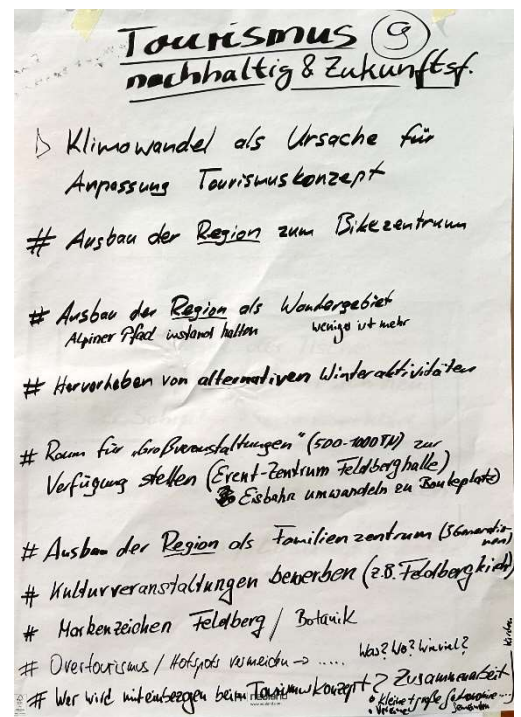 Tourismus 9
nachhaltig & Zukunftsf.
Klimawandel als Ursache für
Anpassung Tourismuskonzept
# Ausbau der Region zum Bikezentrum
# Ausbau der Region als Wandergebiet
Alpiner Pfad instand halten weniger ist mehr
# Hervorheben von alternativen Winteraktivitäten
# Raum für „Großveranstaltungen" (500-1000TN) zur
Verfügung stellen (Event-Zentrum Feldberghalle)
Eisbahn umwandeln zu
# Ausbau der Region als Familienzentrum (3 Generati-
onen)
# Kulturveranstaltungen bewerben (z.B. Feldberg
# Markenzeichen Feldberg / Botanik
Was? Wo? Wieviel?
# Overtourismus / Hotspots vermeiden → .....
# Wer wird miteinbezogen beim Tourismuskonzept? Zusammenarbeit
kleine + große
Vereine
Kirchen